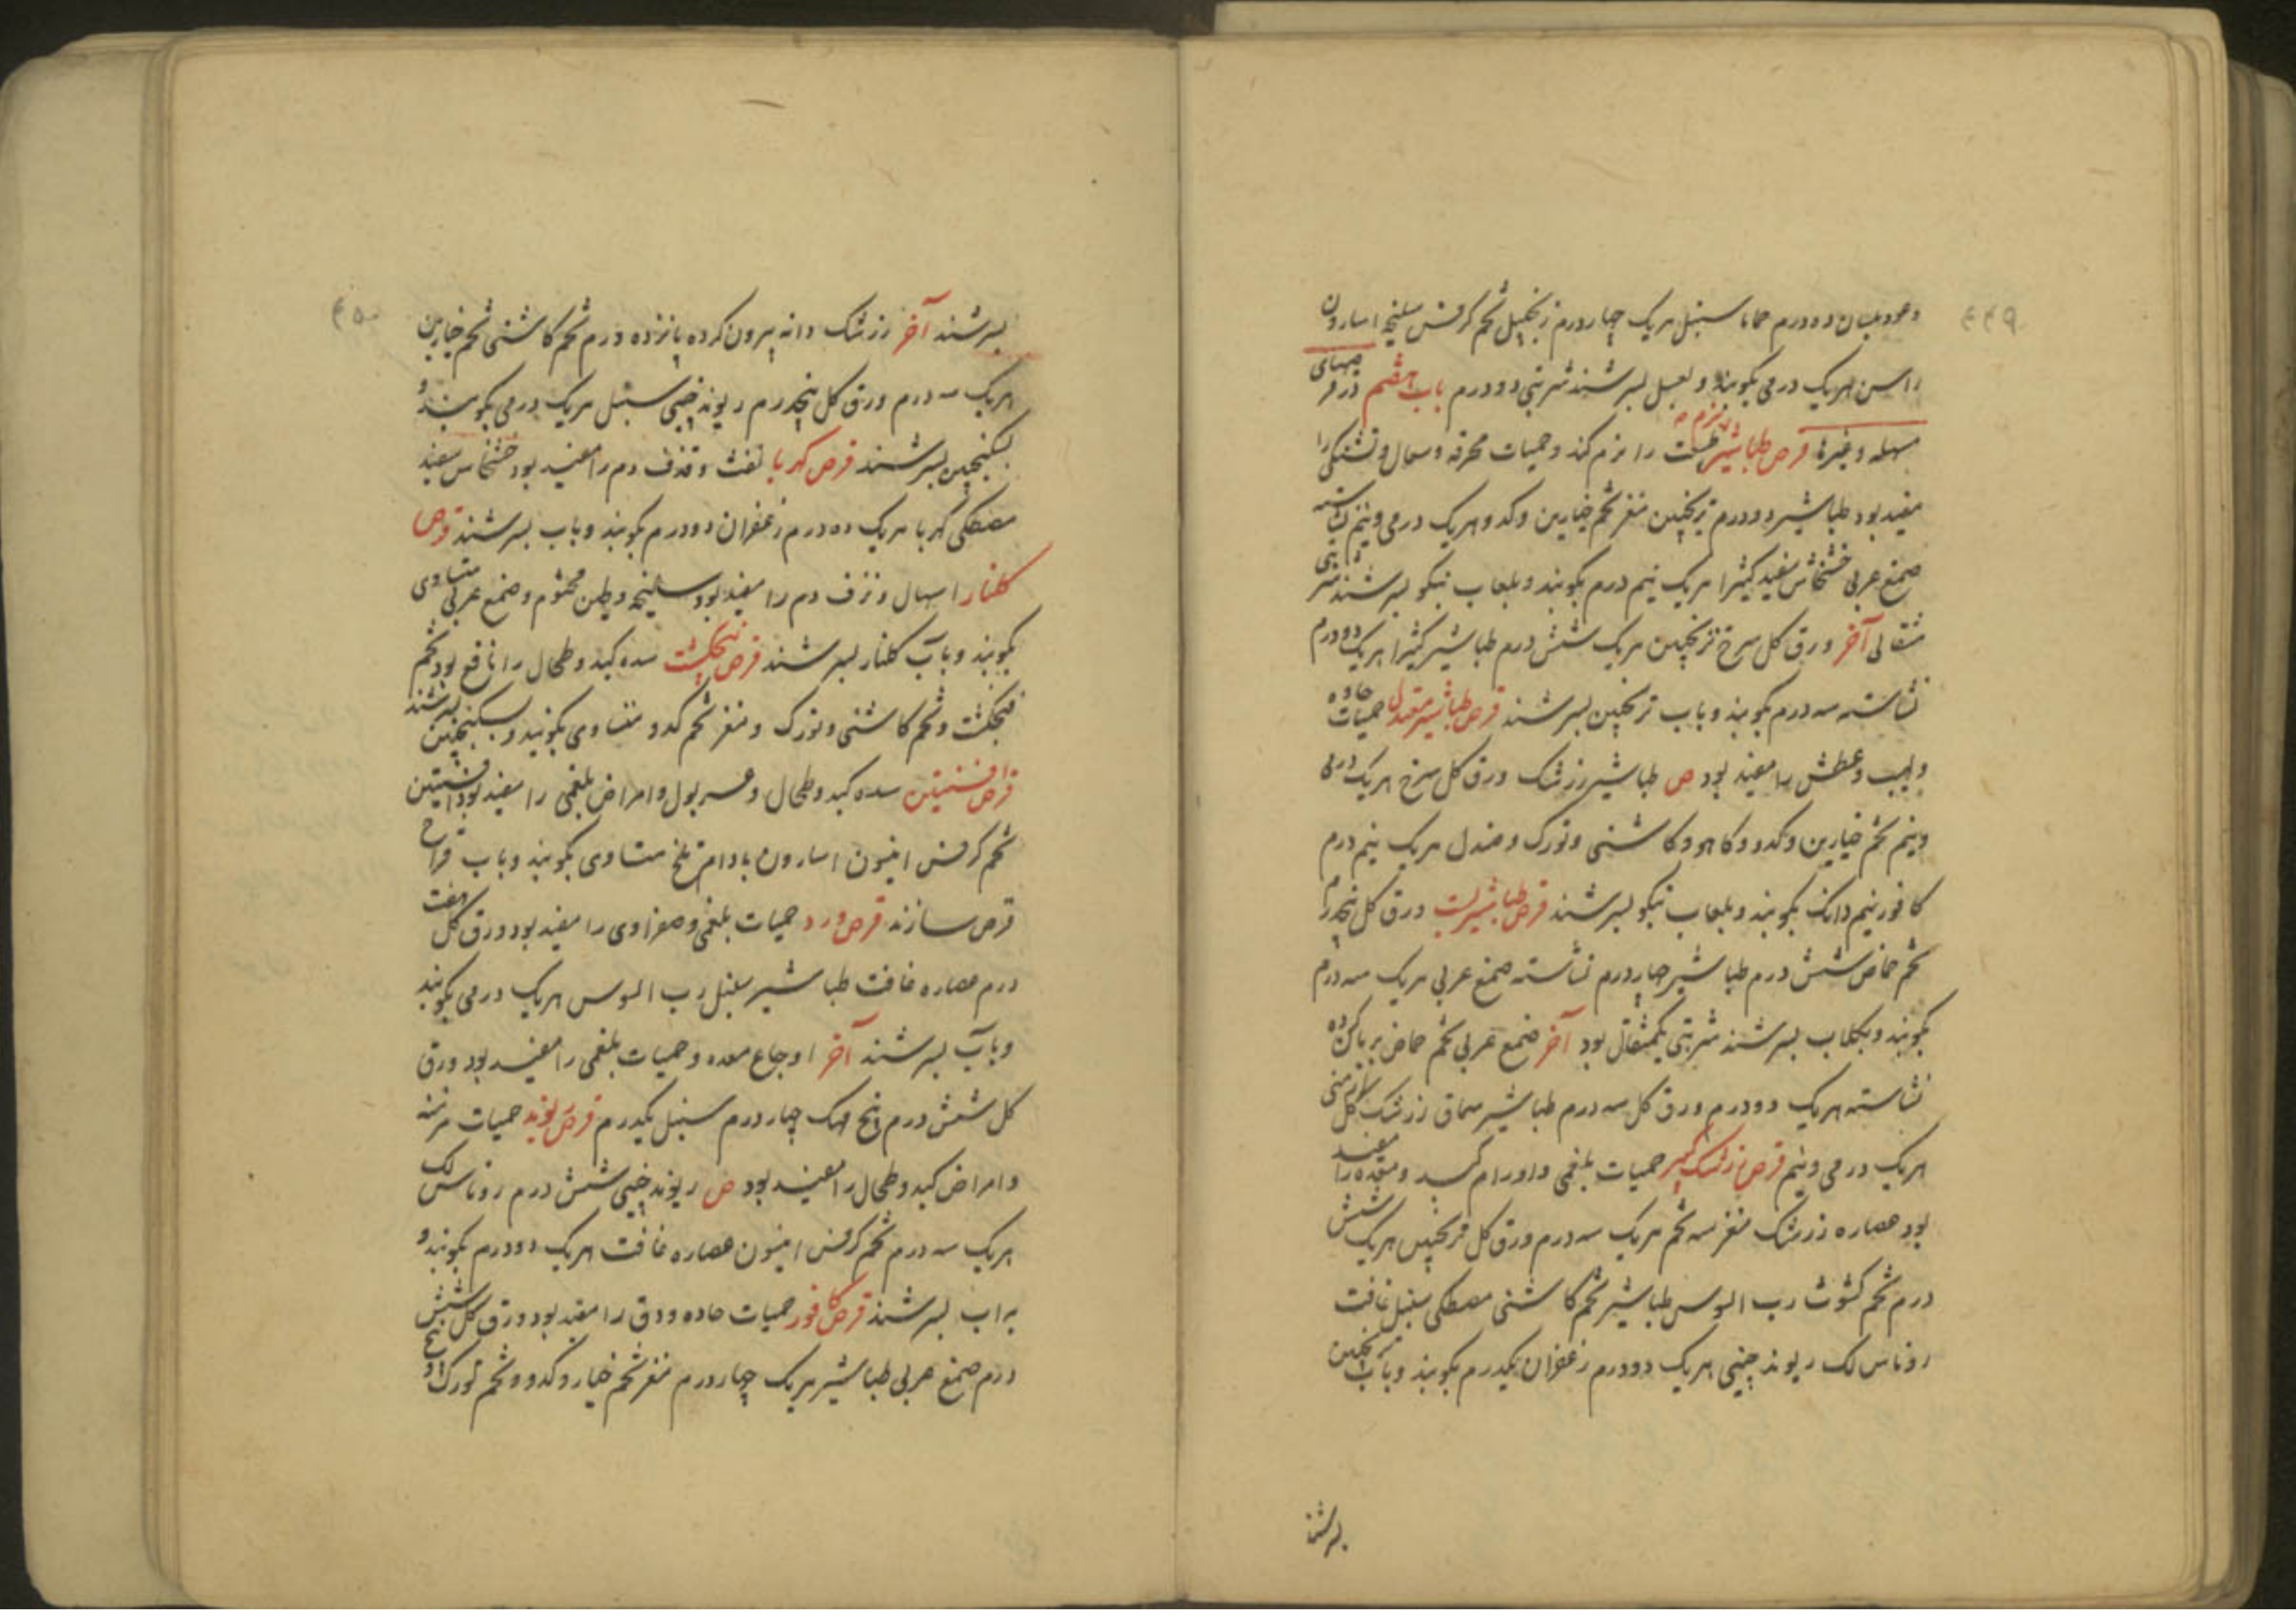 ۴۴۹
وعود بلسان ده درم حماما سنبل هریک چهاردرم زنجبیل تخم کرفس سلیخه اسارون
راسن هریک درمی بکوبند و بعسل بسرشند شربتی دودرم باب هشتم در قرصهای
مسهله و غیرها قرص طباشیر طبیعت را نرم کند و حمیات محرقه و سعال و تشنکی را
مفید بود طباشیر دودرم ترنجبین مغز تخم خیارین و کدو هریک درمی و نیم نشاسته
صمغ عربی خشخاش سفید کثیرا هریک نیم درم بکوبند و بلعاب نیکو بسرشند شربتی
مثقالی آخر ورق کل سرخ ترنجبین هریک شش درم طباشیر کثیرا هریک دودرم
نشاسته سه درم بکوبند و باب ترنجبین بسرشند قرص طباشیر معتدل حمیات حاده
و لهیب و عطش را مفید بود ص طباشیر زرشک ورق کل سرخ هریک درمی
ونیم تخم خیارین و کدو و کاهو و کاشنی و تورک و صندل هریک نیم درم
کافور نیم دانک بکوبند و بلعاب نیکو بسرشند قرص طباشیر ورق کل پنجدرم
تخم حماض شش درم طباشیر چهاردرم نشاسته صمغ عربی هریک سه درم
بکوبند و بکلاب بسرشند شربتی یکمثقال بود آخر صمغ عربی تخم حماض بریان کرده
نشاسته هریک دودرم ورق کل سه درم طباشیر سماق زرشک کل ارمنی
هریک درمی و نیم قرص زرشک کبیر حمیات بلغمی و اورام کبد و معده را مفید
بود عصاره زرشک مغز سه تخم هریک سه درم ورق کل ترنجبین هریک شش
درم تخم کشوث رب السوس طباشیر تخم کاشنی مصطکی سنبل غافت
روناس لک ریوند چینی هریک دودرم زعفران یکدرم بکوبند و باب ترنجبین
بسرشند
۴۵۰
بسرشند آخر زرشک دانه بیرون کرده پانزده درم تخم کاشنی تخم خیارین
هریک سه درم ورق کل پنجدرم ریوند چینی سنبل هریک درمی بکوبند و
بسکنجبین بسرشند قرص کهربا نفث و قذف دم را مفید بود خشخاش سفید
مصطکی کهربا هریک ده درم زعفران دودرم بکوبند و باب بسرشند قرص
کلنار اسهال و نزف دم را مفید بود سلیخه و طین مختوم و صمغ عربی متساوی
بکوبند و باب کلنار بسرشند قرص فنجنکشت سده کبد و طحال را نافع بود تخم
فنجنکشت و تخم کاشنی و تورک و مغز تخم کدو متساوی بکوبند و بسکنجبین بسرشند
قرص افسنتین سده کبد و طحال و عسر بول و امراض بلغمی را مفید بود افسنتین
تخم کرفس انیسون اسارون بادام تلخ متساوی بکوبند و باب قراح
قرص سازند قرص ورد حمیات بلغمی و صفراوی را مفید بود ورق کل هفت
درم عصاره غافت طباشیر سنبل رب السوس هریک درمی بکوبند
و باب بسرشند آخر اوجاع معده و حمیات بلغمی را مفید بود ورق
کل شش درم بیخ مهک چهار درم سنبل یکدرم قرص ریوند حمیات مزمنه
و امراض کبد و طحال را مفید بود ص ریوند چینی شش درم روناس لک
هریک سه درم تخم کرفس انیسون عصاره غافت هریک دودرم بکوبند و
به اب بسرشند قرص کافور حمیات حاده و دق را مفید بود ورق کل شش
درم صمغ عربی طباشیر هریک چهاردرم مغز تخم خیار و کدو و تخم تورک